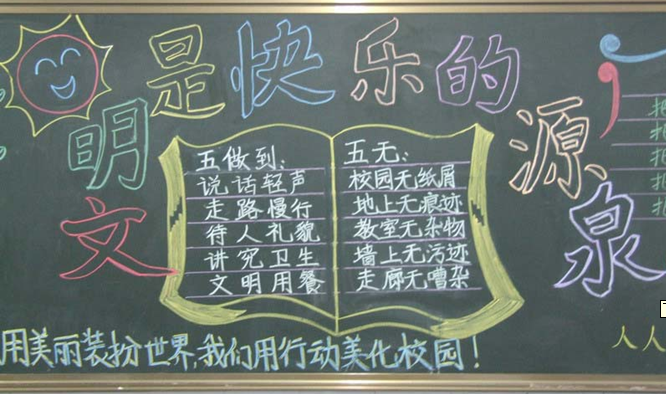 文明是快乐的源泉
五做到:
说话轻声
走路慢行
待人礼貌
讲究卫生
文明用餐
五无:
校园无纸屑
地上无痕迹
教室无杂物
墙上无污迹
走廊无嘈杂
用美丽装扮世界,我们用行动美化校园!
人人